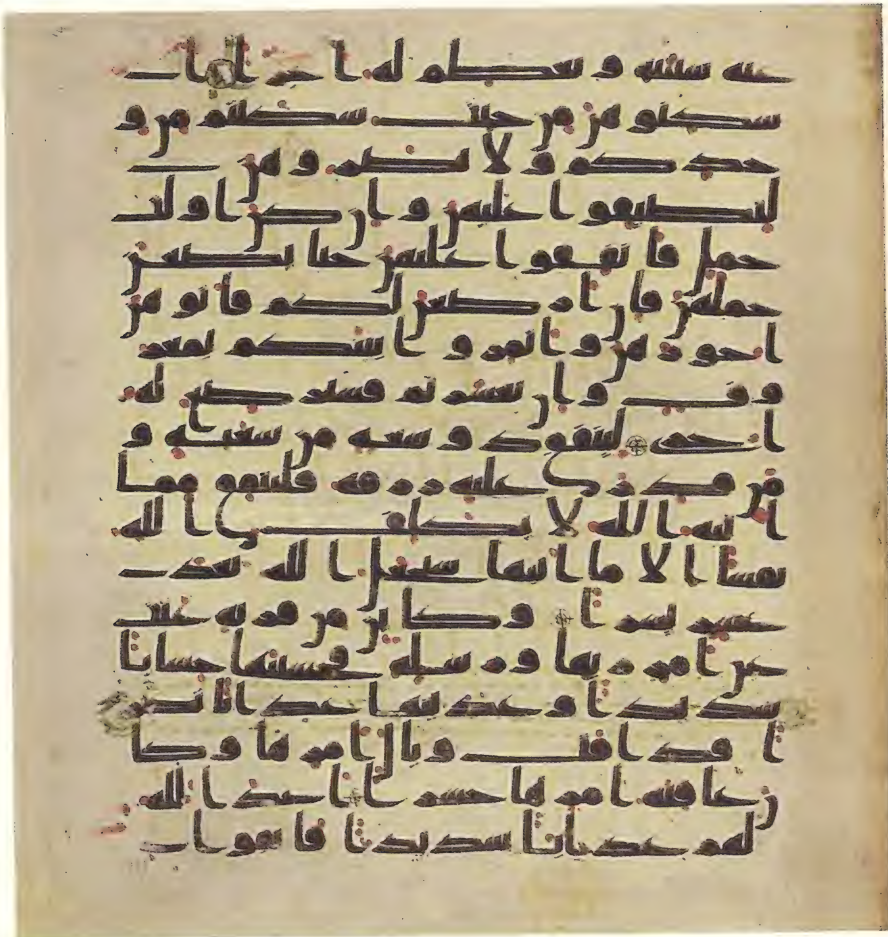 عنه سيته ويعظم له اجرا ا
سكنوهن من حيث سكنتم من و
جدكم ولا تضروهن
لتضيقوا عليهن وان كن اولت
حمل فانفقوا عليهن حتى يضعن
حملهن فان ارضعن لكم فاتوهن
اجورهن واتمروا بينكم بمعر
وف وان تعسرتم فسترضع له
اخرى لينفق ذو سعة من سعته و
من قدر عليه رزقه فلينفق مما
اتيه الله لا يكلف الله
نفسا الا ما اتيها سيجعل الله بعد
عسر يسرا وكاين من قرية عتت
عن امر ربها ورسله فحسبنها حسابا
شديدا وعذبنها عذابا نكر
ا فذاقت وبال امرها وكا
ن عاقبة امرها خسرا اعد الله
لهم عذابا شديدا فاتقوا ا